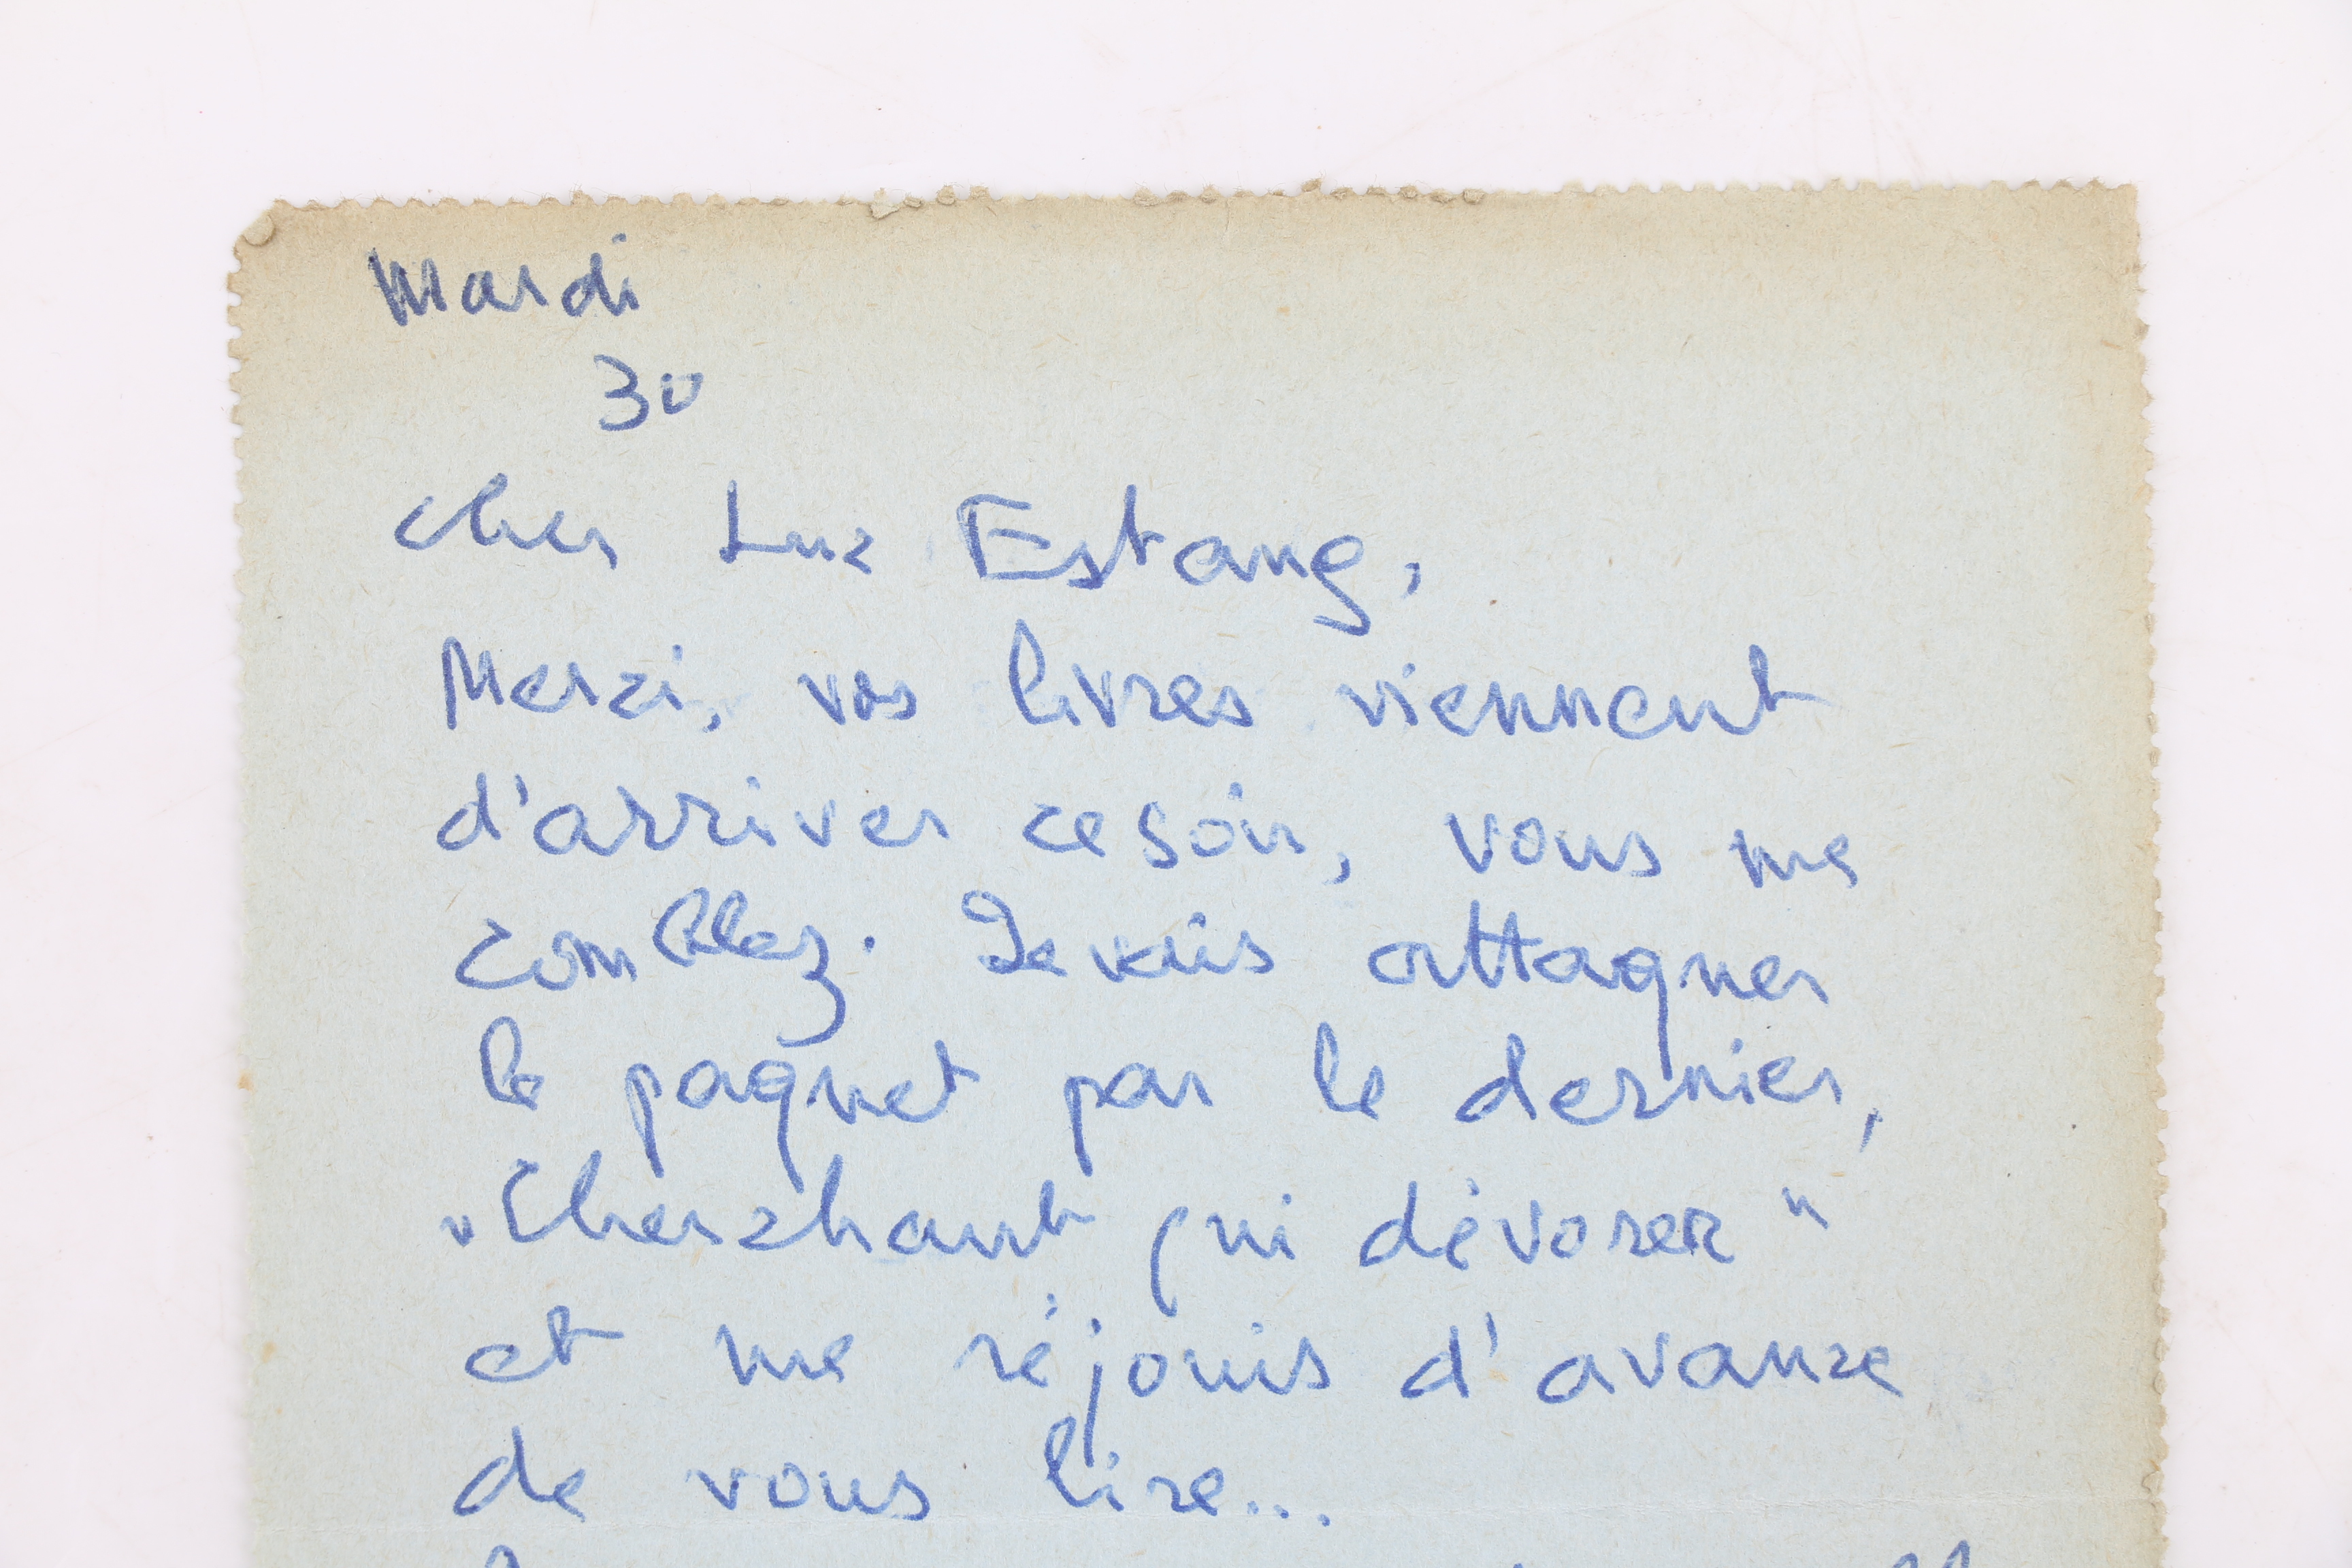 Mardi
30
Cher Luc Estang,
Merci, vos livres viennent
d'arriver ce soir, vous me
comblez. Je vais attaquer
le paquet par le dernier,
"Cherchant qui dévorer"
et me réjouis d'avance
de vous lire...